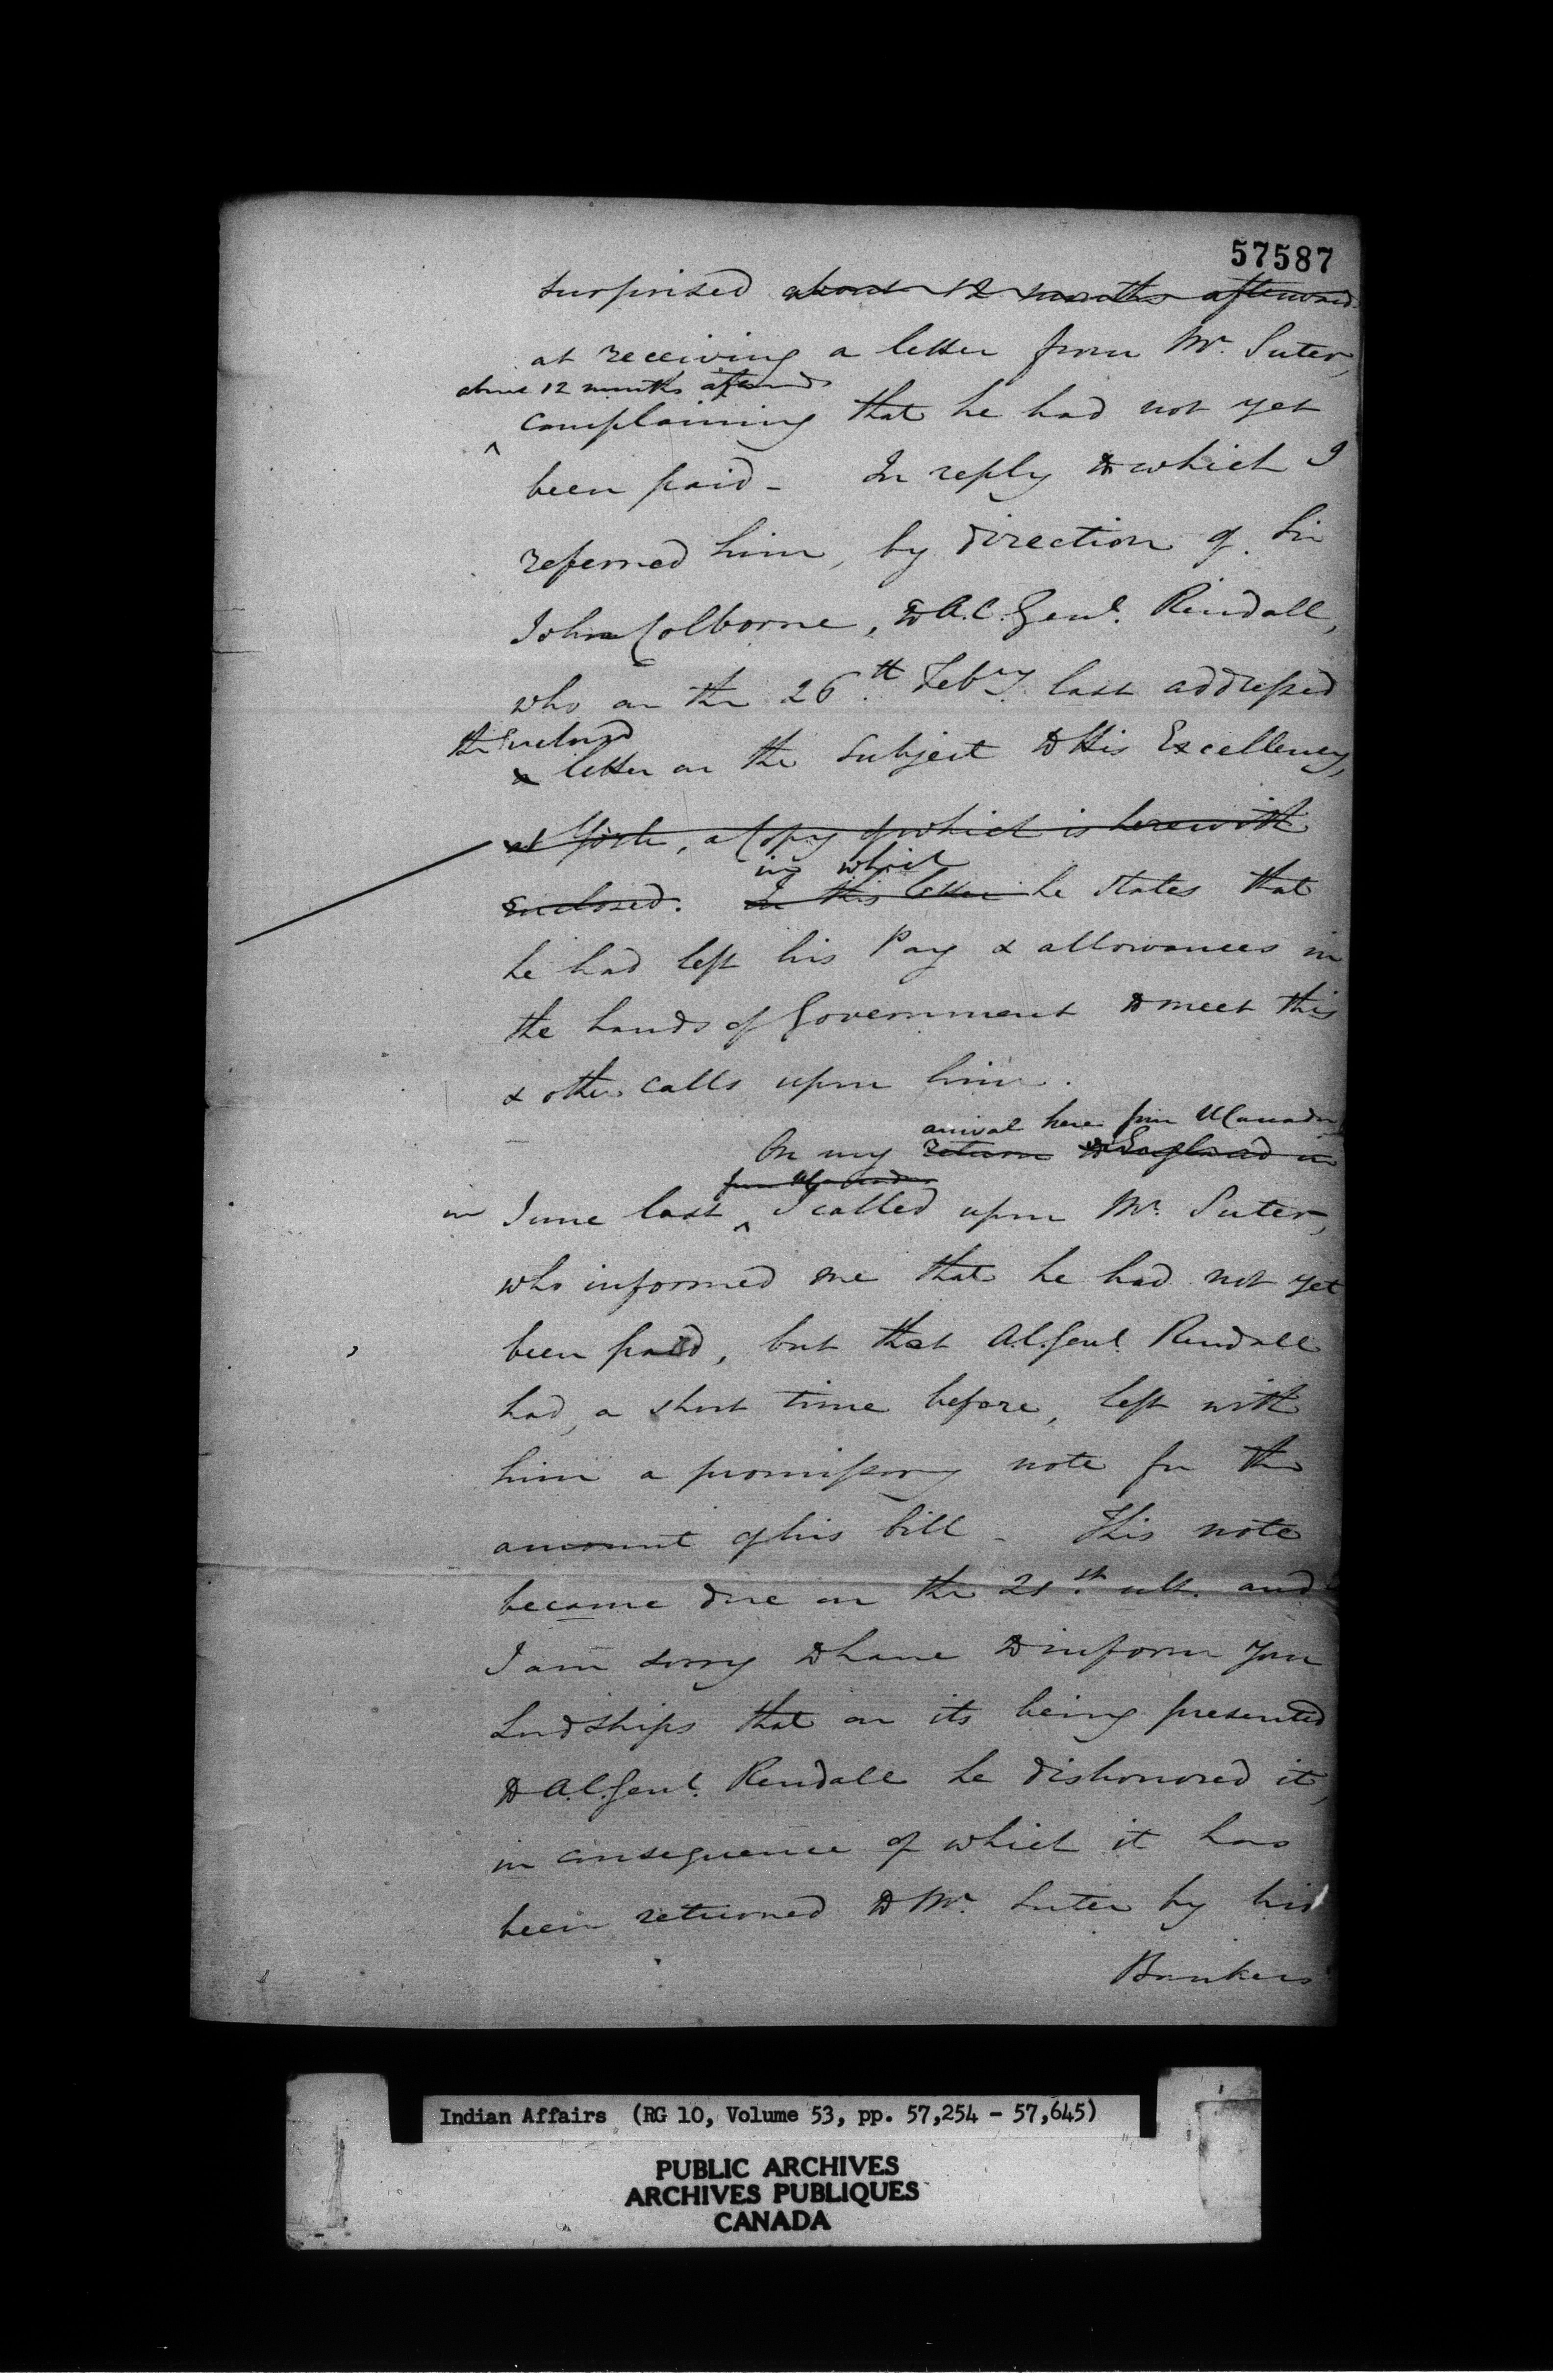 57587
surprised about 12 months afterwards
at receiving a letter from Mr. Suter,
about 12 months afterwards
^ complaining that he had not yet
been paid - In reply to which I
referred him, by direction of Sir
John Colborne, to A.C. Genl. Rendall,
who on the 26th Feby. last addressed
the Enclosed
a letter on the subject to His Excellency,
at York, a Copy of which is herewith
in which
Enclosed. In this letter he states that
he had left his Pay & allowances in
the hands of Government to meet this
& other calls upon him.
arrival here from U Canada
On my return to England in
from U Canada
in June last ^ I called upon Mr. Suter,
who informed me that he had not yet
been paid, but that A.C. Genl. Rendall
had, a short time before, left with
him a promissory note for the
amount of his bill - This note
became due on the 21st ult. and
I am sorry to have to inform your
Lordships that on its being presented
to A.C. Genl. Rendall he dishonored it,
in consequence of which it has
been returned to Mr. Suter by his
Bankers
Indian Affairs (RG 10, Volume 53, pp. 57,254 - 57,645)
PUBLIC ARCHIVES
ARCHIVES PUBLIQUES
CANADA